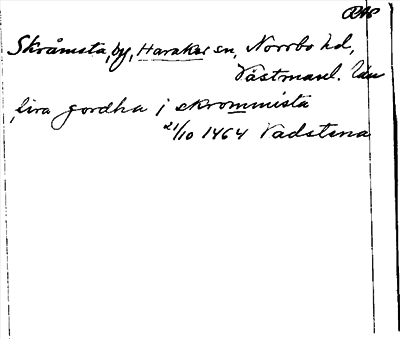 RAP
Skråmsta, by, Haraker sn, Norrbo hd,
Västmanl. län
fira gordha j skrommista
21/10 1464 Vadstena